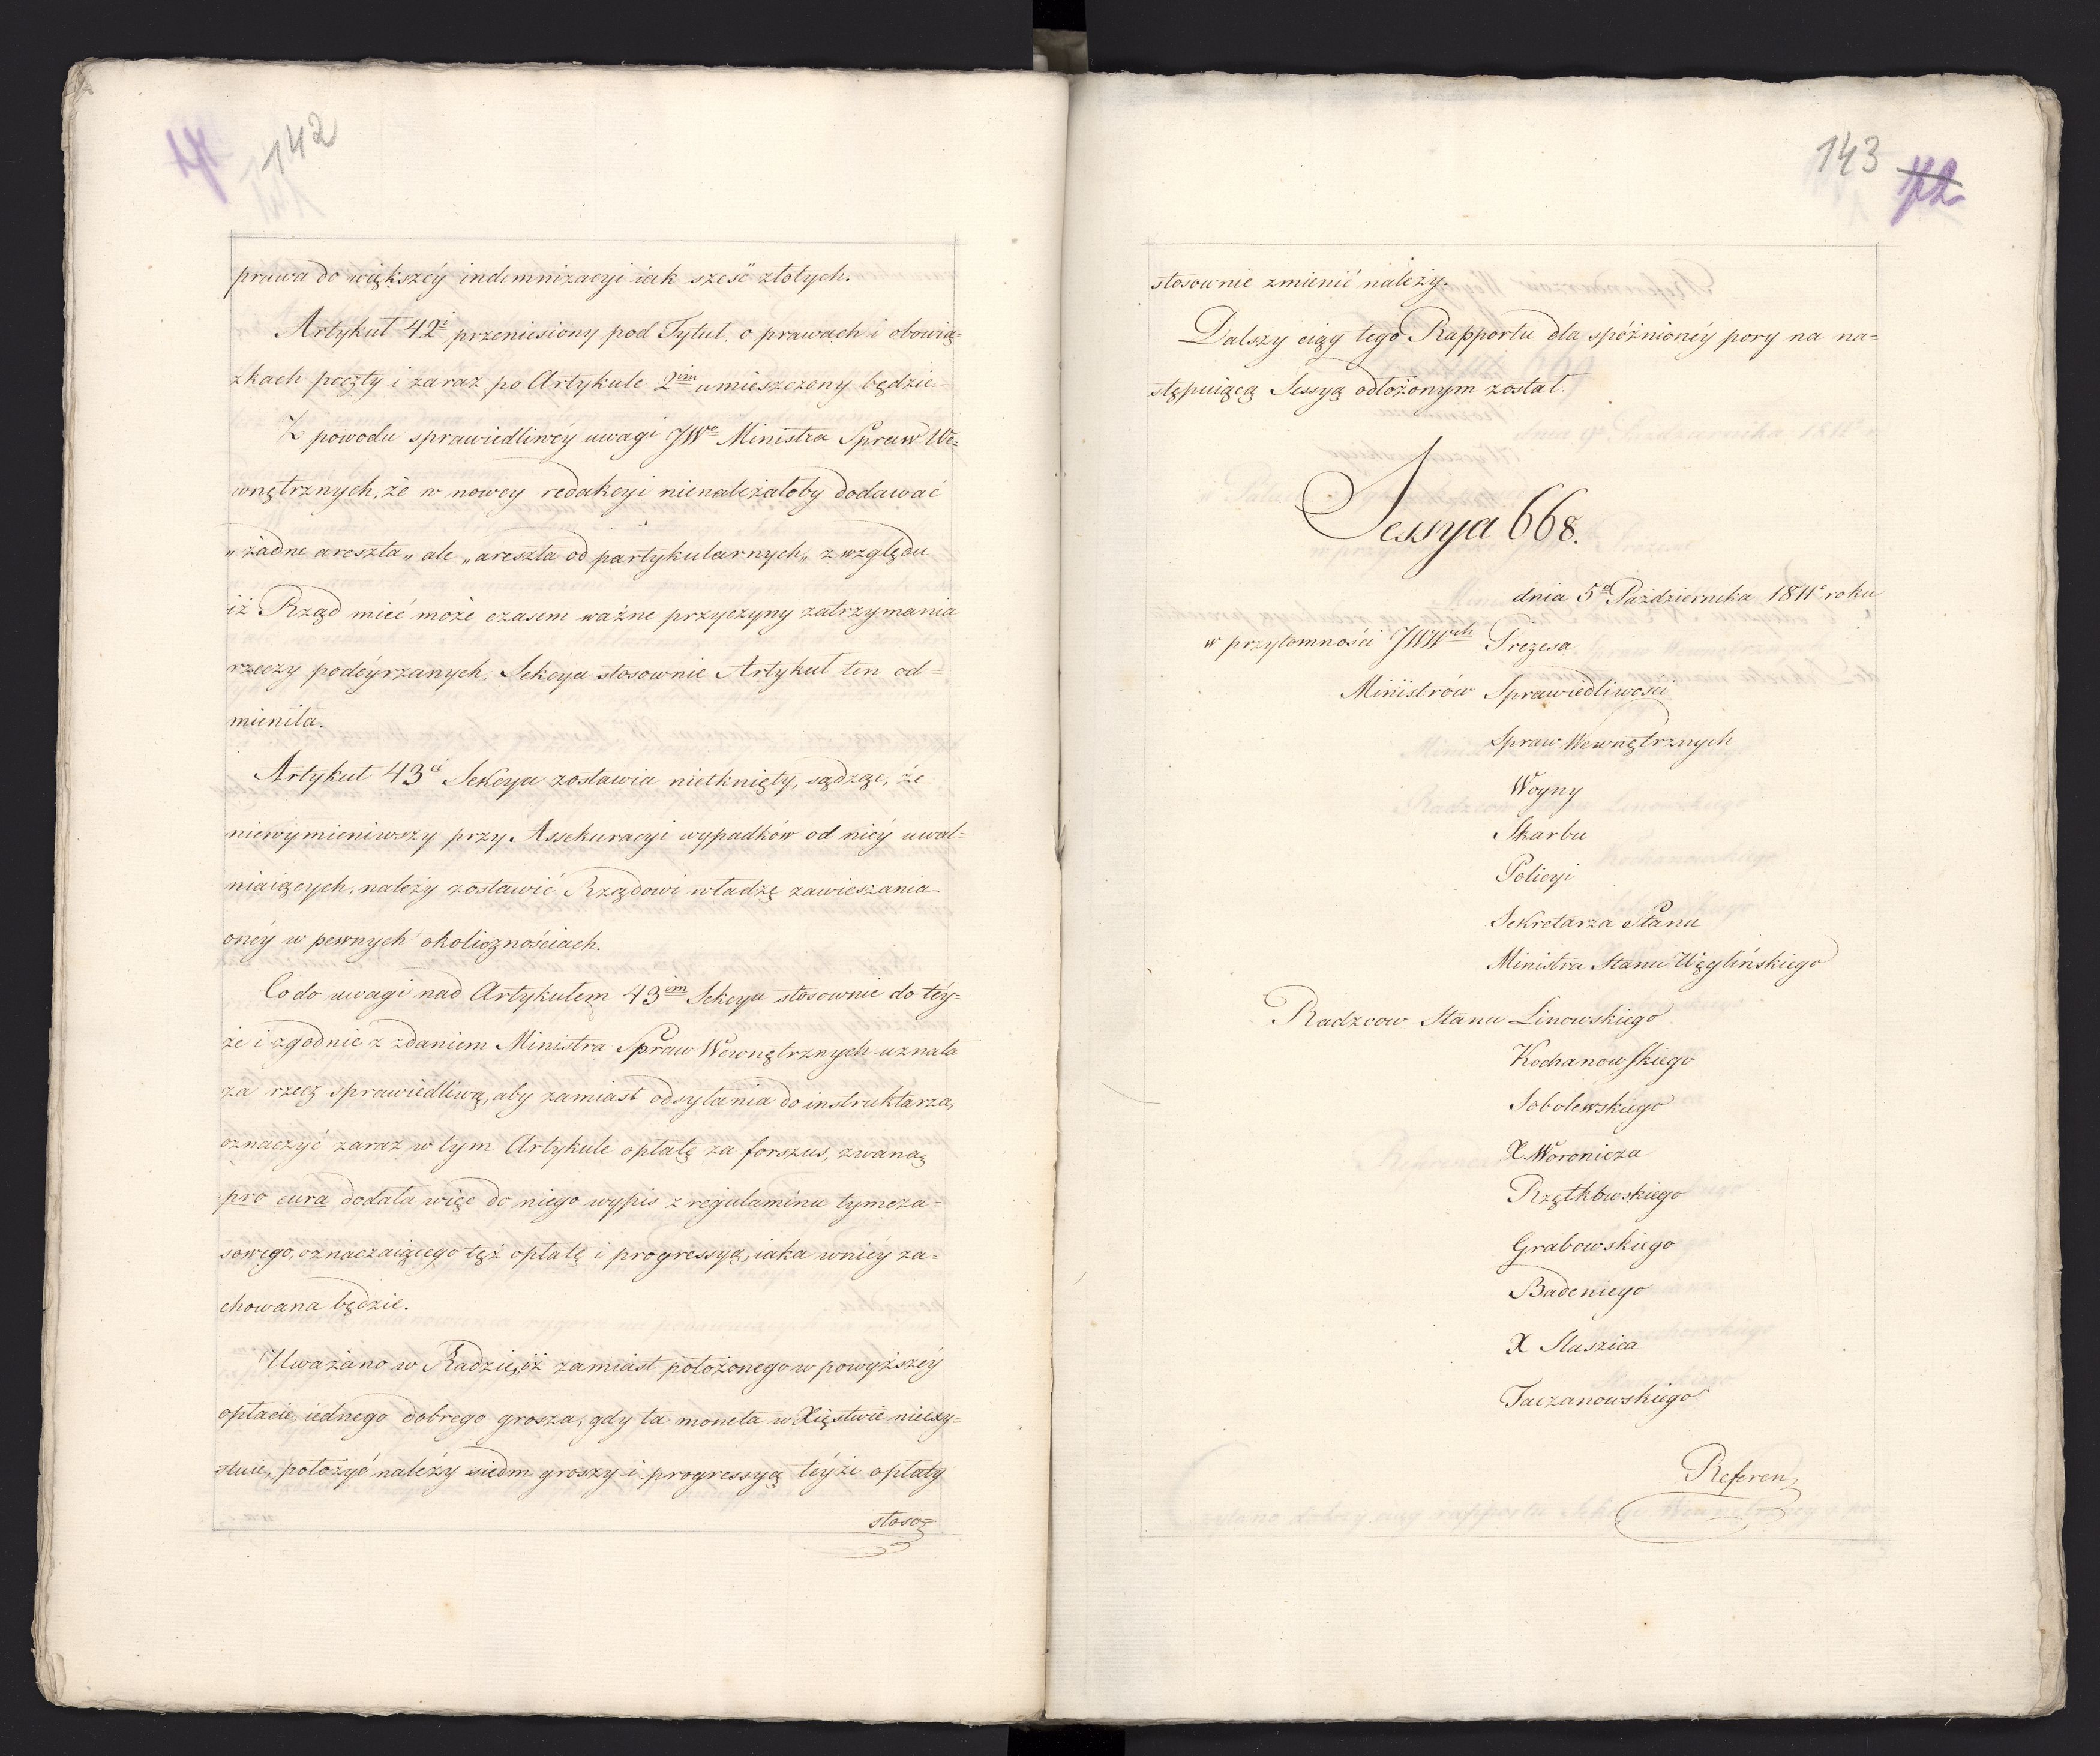 142
prawa do większéy indemnizacyi iak sześć złotych.
Artykuł 42i przeniesiony pod Tytuł o prawach i obowią=
zkach poczty i zaraz po Artykule 2im umieszczony będzie.
Z powodu sprawiedliwéy uwagi JWo Ministra Spraw We=
wnętrznych, że w nowey redakcyi nienależałoby dodawać
„żadne areszta„ ale „areszta od partykularnych„ z względu
iż Rząd mieć może czasem ważne przyczyny zatrzymania
rzeczy podeyrzanych, Sekcya stosownie Artykuł ten od=
mieniła.
Artykuł 43ci Sekcya zostawia nietknięty, sądząc, że
niewymieniwszy przy Assekuracyi wypadków od niéy uwal=
niaiących, należy zostawić Rządowi władzę zawieszania
onéy w pewnych okolicznościach.
Co do uwagi nad Artykułem 43im Sekcya stosownie do téy=
że i zgodnie z zdaniem Ministra Spraw Wewnętrznych uznała
za rzecz sprawiedliwą, aby zamiast odsyłania do instruktarza,
oznaczyć zaraz w tym Artykule opłatę za forszus, zwaną
pro cura dodała więc do niego wypis z regulaminu tymcza=
sowego, oznaczaiącego tęż opłatę i progressyą, iaka w niéy za=
chowana będzie.
Uważano w Radzie, iż zamiast położonego w powyższéy
opłacie, iednego dobrego grosza, gdy ta moneta w Xięstwie niexy=
stuie, położyć należy siedm groszy i progressyą téyże opłaty
stoso=
143 72
stosownie zmienić należy.
Dalszy ciąg tego Rapportu dla spóźnionéy pory na na=
stępuiącą Sessyą odłożonym został.
Sessya 668.
dnia 5o Października 1811o roku
w przytomności JWWch Prezesa
Ministrów Sprawiedliwości
Spraw Wewnętrznych
Woyny
Skarbu
Policyi
Sekretarza Stanu
Ministra Stanu Węglińskiego
Radzcow Stanu Linowskiego
Kochanowskiego
Sobolewskiego
X. Woronicza
Rzętkowskiego
Grabowskiego
Badeniego
X Staszica
Taczanowskiego
Referen=